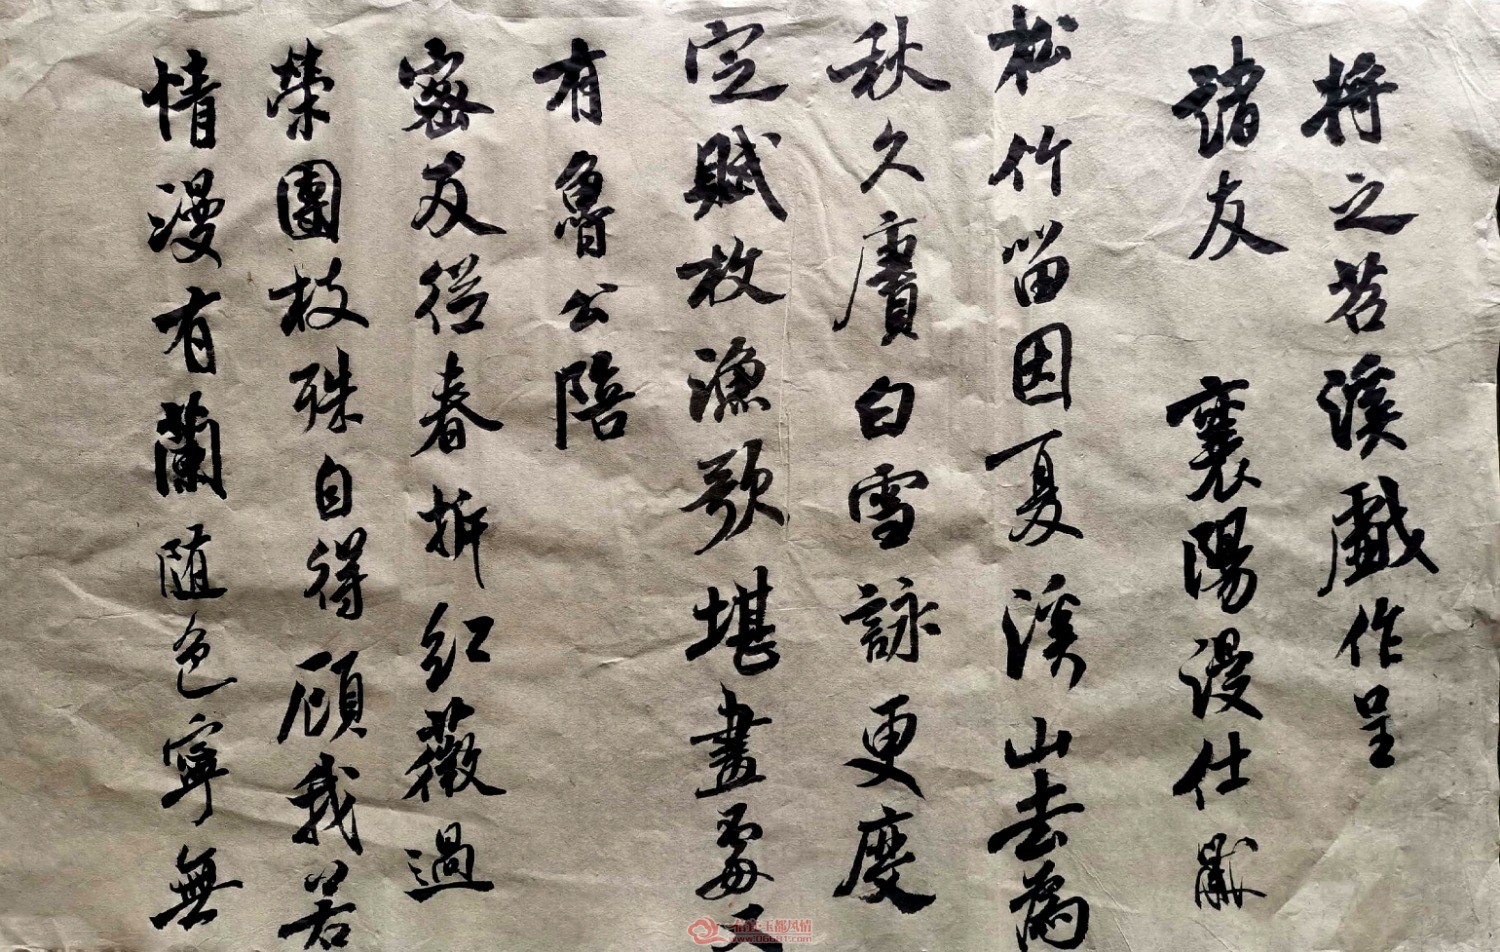 將之苕溪戲作呈
諸友 襄陽漫仕黻
松竹留因夏溪山去為
秋久賡白雪詠更度
定賦枚漁歌堪畫處又
有魯公陪
密友從春拆紅薇過
榮團枝殊自得顧我若
情漫有蘭隨色寧無
信宜·玉都风情